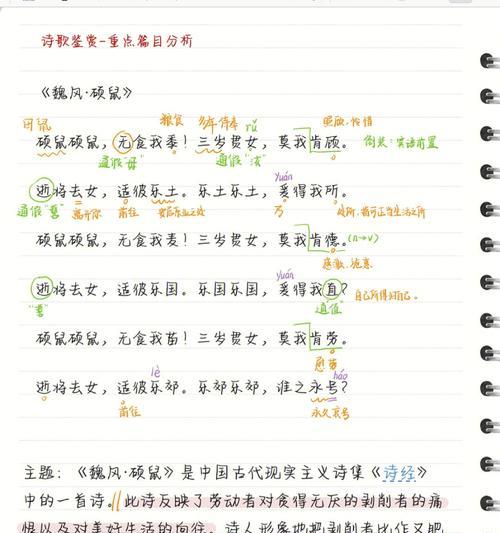 诗歌鉴赏-重点篇目分析
《魏风·硕鼠》
田鼠 粮食 多年侍奉 rǔ 照顾、怜惜
硕鼠硕鼠，无食我黍！三岁贯女，莫我肯顾。倒装：宾语前置
通假"毋" 通假"汝"
yuán
逝将去女，适彼乐土。乐土乐土，爰得我所。
通假"誓" 离开你 前往 安居乐业之处 乃 处所，指可正当生活之所
硕鼠硕鼠，无食我麦！三岁贯女，莫我肯德。(n→v)
yuán 感激、施惠
逝将去女，适彼乐国。乐国乐国，爰得我直？自己所得归自己。
"誓" 通值"
硕鼠硕鼠，无食我苗！三岁贯女，莫我肯劳。
lè 慰劳 háo
逝将去女，适彼乐郊。乐郊乐郊，谁之永号？
前往 永久哀号
主题：《魏风·硕鼠》是中国古代现实主义诗集《诗经》
中的一首诗。//此诗反映了劳动者对贪得无厌的剥削者的痛
恨以及对美好生活的向往，诗人形象地把剥削者比作又肥